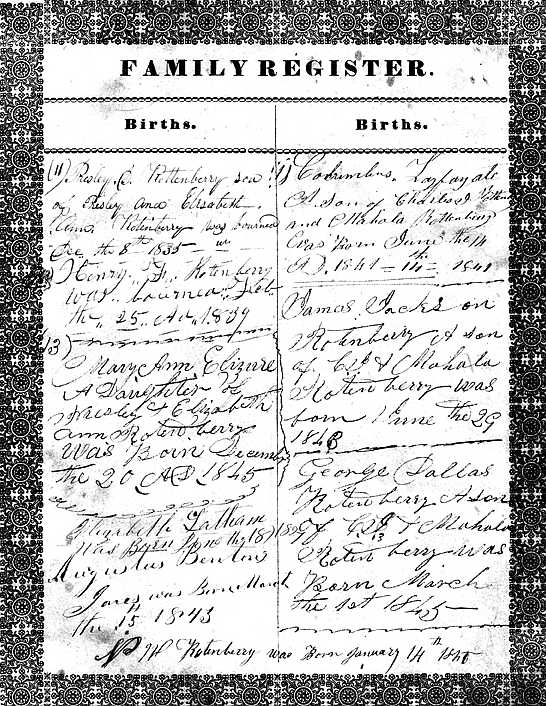 FAMILY REGISTER.
Births.
(1) Presley S. Rottenberry son
of Presley and Elizabeth
Ann Rotenberry was bourned
Dec the 8th 1835
Henry F. Rotenberry
was bourned Feb
the 25 AD 1839
(3)
Mary Ann Elizure
A Daughter of
Presley & Elizabeth
Ann Rotenberry
Was Born December
the 20 AD 1845
Elizabeth Latham
was Born June the 18
Augustus Benton
Jones was Born March
the 15 1843
Births.
1) Columbus Lafayate
A son of Charles J
and Mahala Rottenberry
was born June the 14
A.D. 1841 14th 1841
Jamas Jacks on
Rotenberry A son
of C J & Mahala
Rotenberry was
born June the 29
1843
George Dallas
Rotenberry A son
of C J & Mahala
Rotenberry was
Born March
the 1st 1845
W Rotenberry was Born January 14th